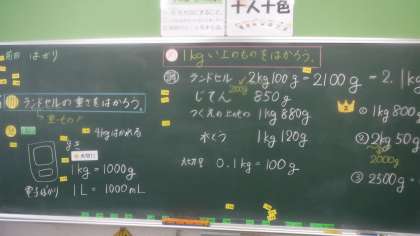 十人十色
前回 はかり
ランドセルの重さをはかろう。
重いもの!
4kgはかれる
1kg = 1000g
電子ばかり
1L = 1000mL
1kg以上のものをはかろう。
ランドセル 2kg100g = 2100g = 2.1
200g
じてん 850g
つくえの上のもの 1kg880g
水とう 1kg120g
大切 0.1kg = 100g
① 1kg800
② 2kg50
2000g
③ 2500g =